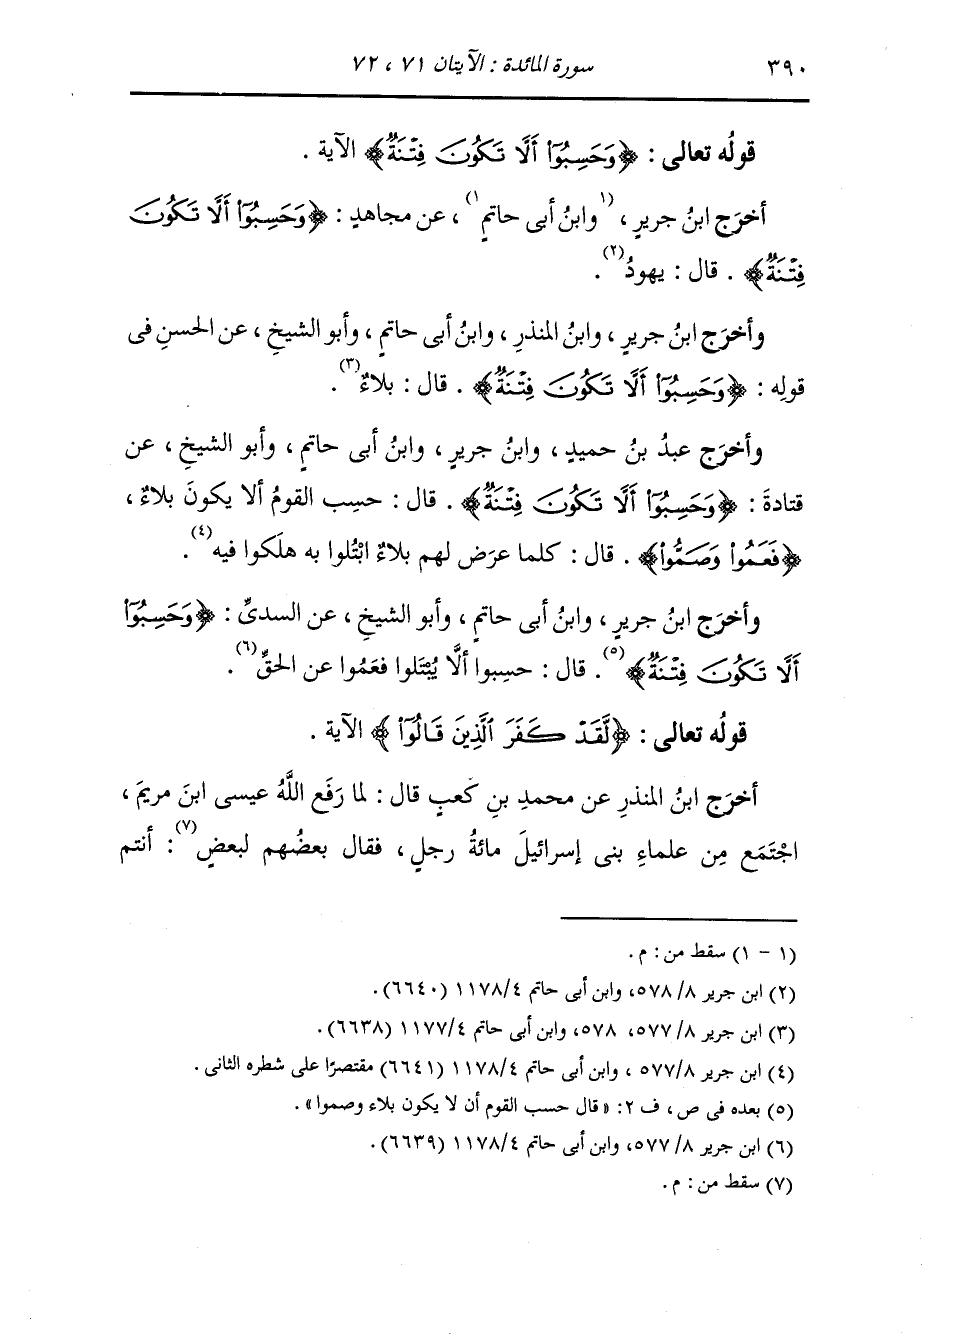 ٣٩٠ سورة المائدة : الآيتان ٧١ ، ٧٢
قولُه تعالى : ﴿وَحَسِبُوٓا۟ أَلَّا تَكُونَ فِتْنَةٌ﴾ الآية .
أخرَج ابنُ جريرٍ ، (١وابنُ أبى حاتمٍ١) ، عن مجاهدٍ : ﴿وَحَسِبُوٓا۟ أَلَّا تَكُونَ
فِتْنَةٌ﴾ . قال : يهودُ(٢) .
وأخرَج ابنُ جريرٍ ، وابنُ المنذرِ ، وابنُ أبى حاتمٍ ، وأبو الشيخِ ، عن الحسنِ فى
قولِه : ﴿وَحَسِبُوٓا۟ أَلَّا تَكُونَ فِتْنَةٌ﴾ . قال : بلاءٌ(٣) .
وأخرَج عبدُ بنُ حميدٍ ، وابنُ جريرٍ ، وابنُ أبى حاتمٍ ، وأبو الشيخِ ، عن
قتادةَ : ﴿وَحَسِبُوٓا۟ أَلَّا تَكُونَ فِتْنَةٌ﴾ . قال : حسِب القومُ ألا يكونَ بلاءٌ ،
﴿فَعَمُوا۟ وَصَمُّوا۟﴾ . قال : كلما عرَض لهم بلاءٌ ابْتُلوا به هلَكوا فيه(٤) .
وأخرَج ابنُ جريرٍ ، وابنُ أبى حاتمٍ ، وأبو الشيخِ ، عن السدىِّ : ﴿وَحَسِبُوٓا۟
أَلَّا تَكُونَ فِتْنَةٌ﴾(٥) . قال : حسِبوا ألَّا يُبْتَلوا فعَمُوا عن الحقِّ(٦) .
قولُه تعالى : ﴿لَّقَدْ كَفَرَ ٱلَّذِينَ قَالُوٓا۟﴾ الآية .
أخرَج ابنُ المنذرِ عن محمدِ بنِ كعبٍ قال : لما رَفَع اللَّهُ عيسى ابنَ مريمَ ،
اجْتَمَع مِن علماءِ بنى إسرائيلَ مائةُ رجلٍ ، فقال بعضُهم لبعضٍ(٧) : أنتم
(١ - ١) سقط من : م .
(٢) ابن جرير ٨/ ٥٧٨، وابن أبى حاتم ٤/ ١١٧٨ (٦٦٤٠) .
(٣) ابن جرير ٨/ ٥٧٧، ٥٧٨، وابن أبى حاتم ٤/ ١١٧٧ (٦٦٣٨) .
(٤) ابن جرير ٨/ ٥٧٧ ، وابن أبى حاتم ٤/ ١١٧٨ (٦٦٤١) مقتصرًا على شطره الثانى .
(٥) بعده فى ص ، ف ٢: « قال حسب القوم أن لا يكون بلاء وصموا » .
(٦) ابن جرير ٨/ ٥٧٧، وابن أبى حاتم ٤/ ١١٧٨ (٦٦٣٩) .
(٧) سقط من : م .